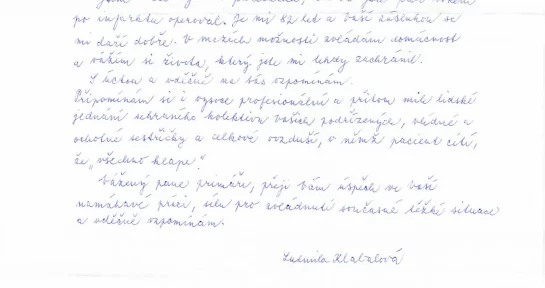 po infarktu operoval. Je mi 82 let a vaší zásluhou se
mi daří dobře. V mezích možností zvládám domácnost
a vážím si života, který jste mi tehdy zachránil.
S úctou a vděčně na vás vzpomínám.
Připomínám si i vysoce profesionální a přitom milé lidské
jednání sehraného kolektivu vašich podřízených, vlídné a
ochotné sestřičky a celkové ovzduší, v němž pacient cítí,
že „všechno klape".
Vážený pane primáři, přeji vám úspěch ve vaší
namáhavé práci, sílu pro zvládnutí současné těžké situace
a vděčně vzpomínám.
Ludmila Klabalová